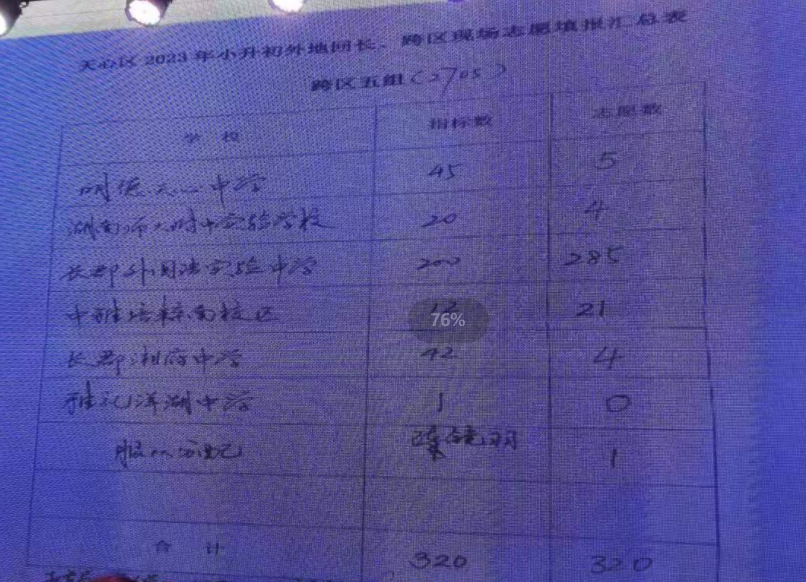 天心区2023年小升初外地回长、跨区现场志愿填报汇总表
跨区五组(2705)
学 校 指标数 志愿数
明德天心中学 45 5
湖南师大附中实验学校 20 4
长郡外国语实验中学 200 285
中雅培粹南校区 12 21
76%
长郡湘府中学 42 4
雅礼洋湖中学 1 0
服从分配 1
合 计 320 320